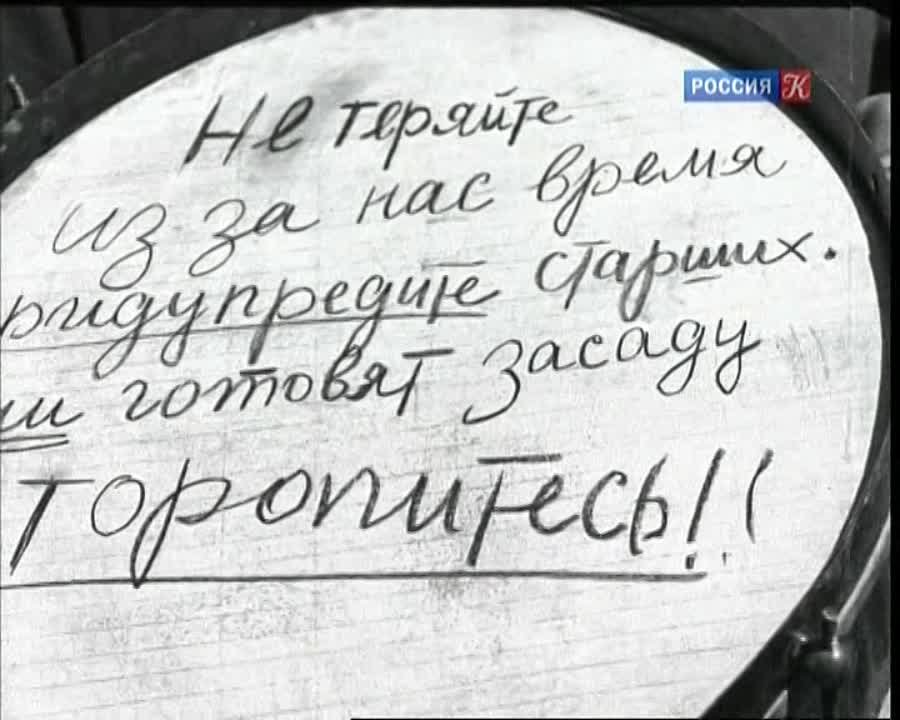 РОССИЯ К
Не теряйте
из за нас время
ридупредите старших.
готовят засаду
Торопитесь!!